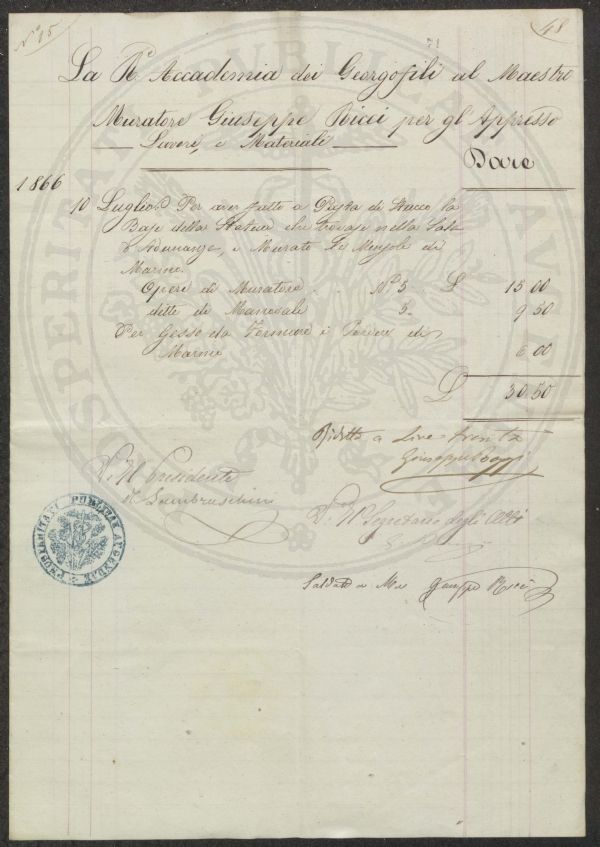 N° 15
48
La R. Accademia dei Georgofili al Maestro
Muratore Giuseppe Ricci per gl'Appresso
Lavori, e Materiali
Dare
1866
10 Luglio Per aver fatto a Pietra di Stucco la
Base della Statua che trovasi nella Sala
d'Adunanze, e Murato le Mensole di
Marmo.
Opere di Muratore N° 5 L 15 00
dette di Manovale 5 9 50
Per Gesso da Formare e Polvere di
Marmo 6 00
L 30 50
Ridotto a Lire trenta
Giuseppe
V. Il Presidente
R. Lambruschini
V. Il Segretario degli Atti
Saldato a Me Giuseppe Ricci
PROSPERITATI PUBLICAE AUGENDAE
PROSPERITATI PUBLICAE AUGENDAE